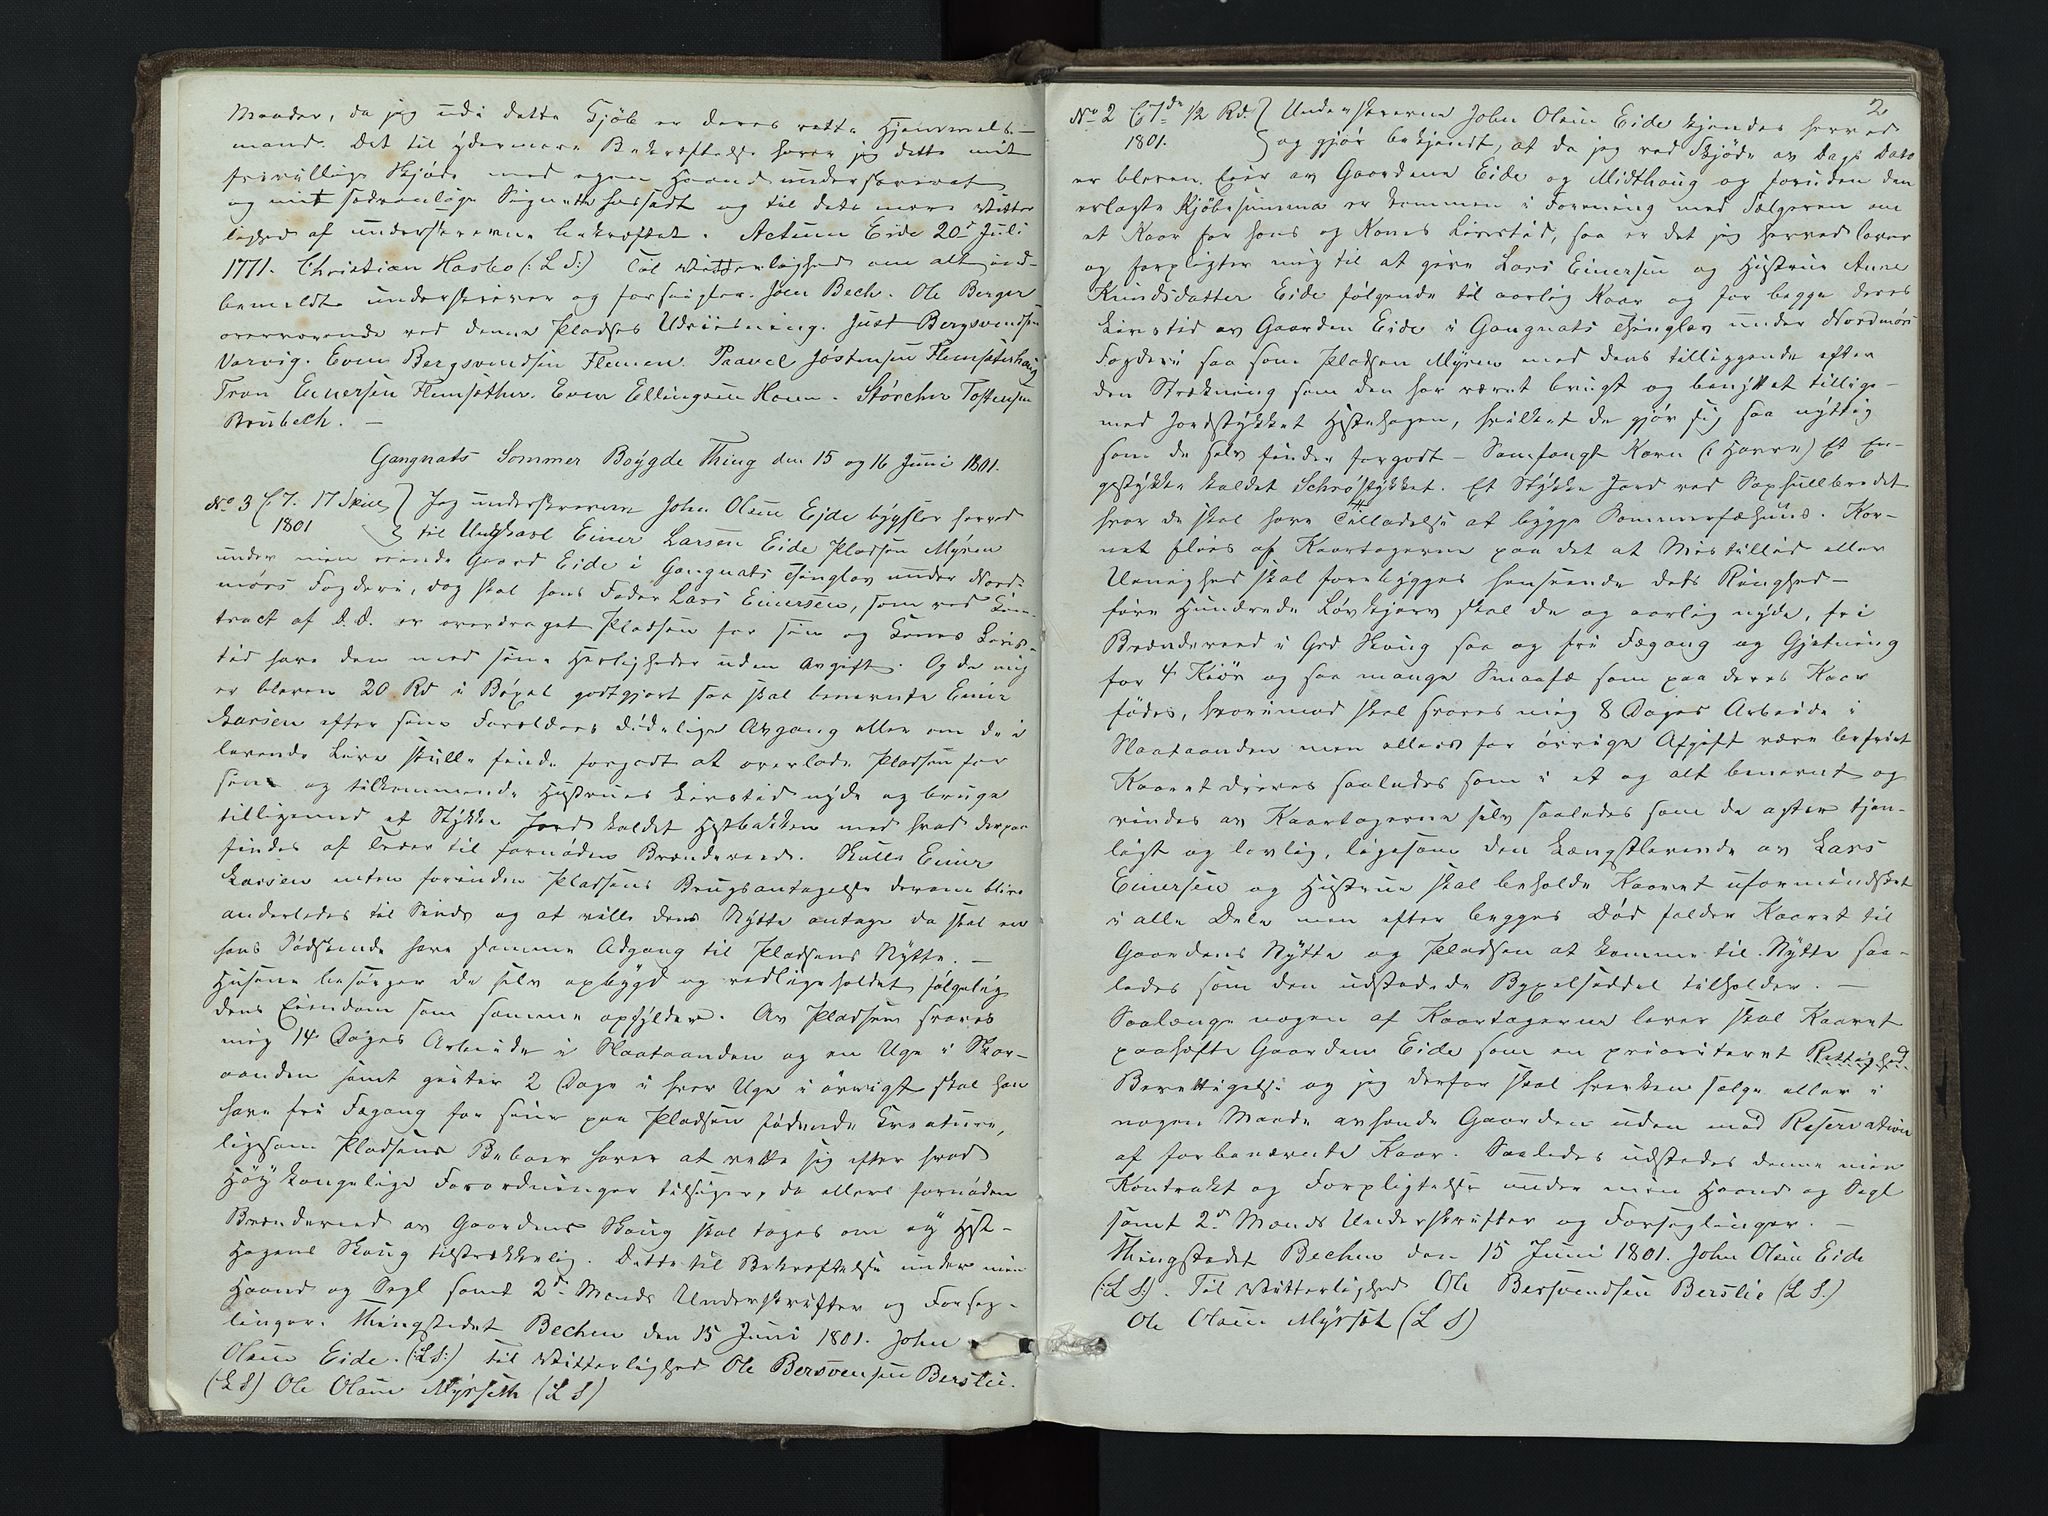 Maader, da jeg udi dette Kjöb er deres rette Hjemmels-
mand. Det til ydermere Bekræftelse haver jeg dette mit
frivillige Skjöde med egen Haand underskrevet
og mit sædvanlige Signete hossadt og til dets mere Vitter
lighed af underskrevne bekræftet. Actum Eide 20de Juli
1771. Christian Hasbo (: L S:) Til Vitterlighed om alt ind-
bemeldte underskriver og forseigler. Joen Bech. Ole Berger
overværende ved denne Pladses Udviisning. Just Bergsvendsen
Varvig. Even Bergsvendsen Flemen. Paavel Jostensen Flemsæterhaug
Tron Einersen Flemsæther. Even Ellingsen Hoem. Störcher Tostensen
Brubech. —
Gangnats Sommer Boygde Thing den 15 og 16 Juni 1801.
No 3 C 7. 17 Skill } Jeg underskrevne John Olsen Ejde bygsler herved
1801 til Ungkarl Einer Larsen Eide Pladsen Myren
under min eiende Gaard Eide i Gangnats Thinglav under Nord-
mörs Fogderi, dog skal hans Fader Lars Einersen, som ved Kon-
tract af D. D. er overdraget Pladsen for sin og Kones Livs-
tid have den med sine Herligheder uden Avgift. Og da mig
er bleven 20 Rd i Böxel godtgjort saa skal benævnte Einer
Larsen efter sine Forældres dödelige Avgang eller om de i
levende Live skulle finde forgodt at overlade Pladsen for
sin og tilkommende Hustrues Livstid nyde og bruge
tilligemed et Stykke Jord kaldet Hestbakken med hvad derpaa
findes af Træer til fornöden Brændeveed. Skulle Einer
Larsen enten forinden Pladsens Brugsantagelse derom blive
anderledes til Sinds og at ville dens Nytte antage da skal en
hans Södskende have samme Adgang til Pladsens Nytte. —
Husene besörger de selv opbygd og vedligeholdet fölgelig
dens Eiendom som samme opfylder. Av Pladsen svares
mig 14 Dages Arbeide i Slaataanden og en Uge i Skur-
aanden samt gieter 2 Dage i hver Uge i övrigt skal han
have fri Fægang for sine paa Pladsen födende Creature,
ligesom Pladsens Beboer haver at rette sig efter hvad
Höy kongelige Forordninger tilsiger, da ellers fornöden
Brændeved av Gaardens Skoug skal tages om ey Hest-
Hagens Skoug tilstrækkelig. Dette til Bekræftelse under min
Haand og Segl samt 2de Mænds Underskrifter og Forseg-
linger. Thingstedet Bechen den 15 Juni 1801. John
Olsen Eide. (: L S:) til Vitterlighed Ole Bersvensen Berslie.
(L S) Ole Olsen Myrseth (L S)
2
No 2 C 7de 1/2 Rd. } Underskrevne John Olsen Eide kjendes herved
1801. og gjör bekjendt, at da jeg ved Skjöde av Dags Dato
er bleven Eier av Gaardene Eide og Midthaug og foruden den
erlagte Kjöbesumma er kommen i Forening med Sælgeren om
et Kaar for hans og Kones Livstid, saa er det jeg herved lover
og forpligter mig til at give Lars Einersen og Hustrue Anne
Knudsdatter Eide fölgende til aarlig Kaar og for begge deres
Livstid av Gaarden Eide i Gangnats Thinglav under Nordmörs
Fogderi saa som Pladsen Myren med dens tilliggende efter
den Strækning som den har været brugt og benyttet tillige-
med Jordstykket Hestehagen, hvilket de gjör sig saa nyttig
som de selv finder forgodt – Samfangt Korn (: Havre) Et En-
gestykke kaldet Schrostykket. Et Stykke Jord ved
hvor de skal have Tilladelse at bygge Sommerfæhuus. Kor-
net flöis af Kaartagerne paa det at Mistillid eller
Uenighed skal forebygges henseende dets Ringhed –
fire Hundrede Lövkjerv skal de og aarlig nyde, fri
Brændeveed i Grd Skoug saa og fri Fægang og Gjetning
for 4 Kiör og saa mange Smaafæ som paa deres Kaar
födes, hvorimod skal svares mig 8 Dages Arbeide i
Slaataanden men ellers for övrige Afgift være befriet
Kaaret drives saaledes som i et og alt benævnt og
vindes av Kaartagerne selv saaledes som de agter tjen-
ligt og lovlig, ligesom den Længstlevende av Lars
Einersen og Hustrue skal beholde Kaaret uformindsket
i alle Dele men efter begges Död falder Kaaret til
Gaardens Nytte og Pladsen at komme til Nytte saa-
ledes som den udstedede Byxelseddel tilholder. —
Saalænge nogen af Kaartagerne lever skal Kaaret
paahefte Gaarden Eide som en prioriteret Rettighed
Berettigelse og jeg derfor skal hverken sælge eller i
nogen Maade avhænde Gaarden uden med Reservation
af forbenævnte Kaar. Saaledes udstedes denne min
Kontrakt og Forpligtelse under min Haand og Segl
samt 2de Mænds Underskrifter og Forseglinger. —
Thingstedet Bechen den 15 Juni 1801. John Olsen Eide
(: L S:). Til Vitterlighed Ole Bersvendsen Berslie (L S.)
Ole Olsen Myrset (L S)